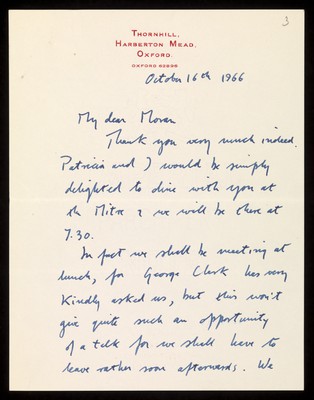 3
THORNHILL,
HARBERTON MEAD,
OXFORD.
OXFORD 62896
October 16th 1966
My dear Moran
Thank you very much indeed.
Patricia and I would be simply
delighted to dine with you at
the Mitre & we will be there at
7.30.
In fact we shall be meeting at
lunch, for George Clark has very
kindly asked us, but this won't
give quite such an opportunity
of a talk for we shall have to
leave rather soon afterwards. We